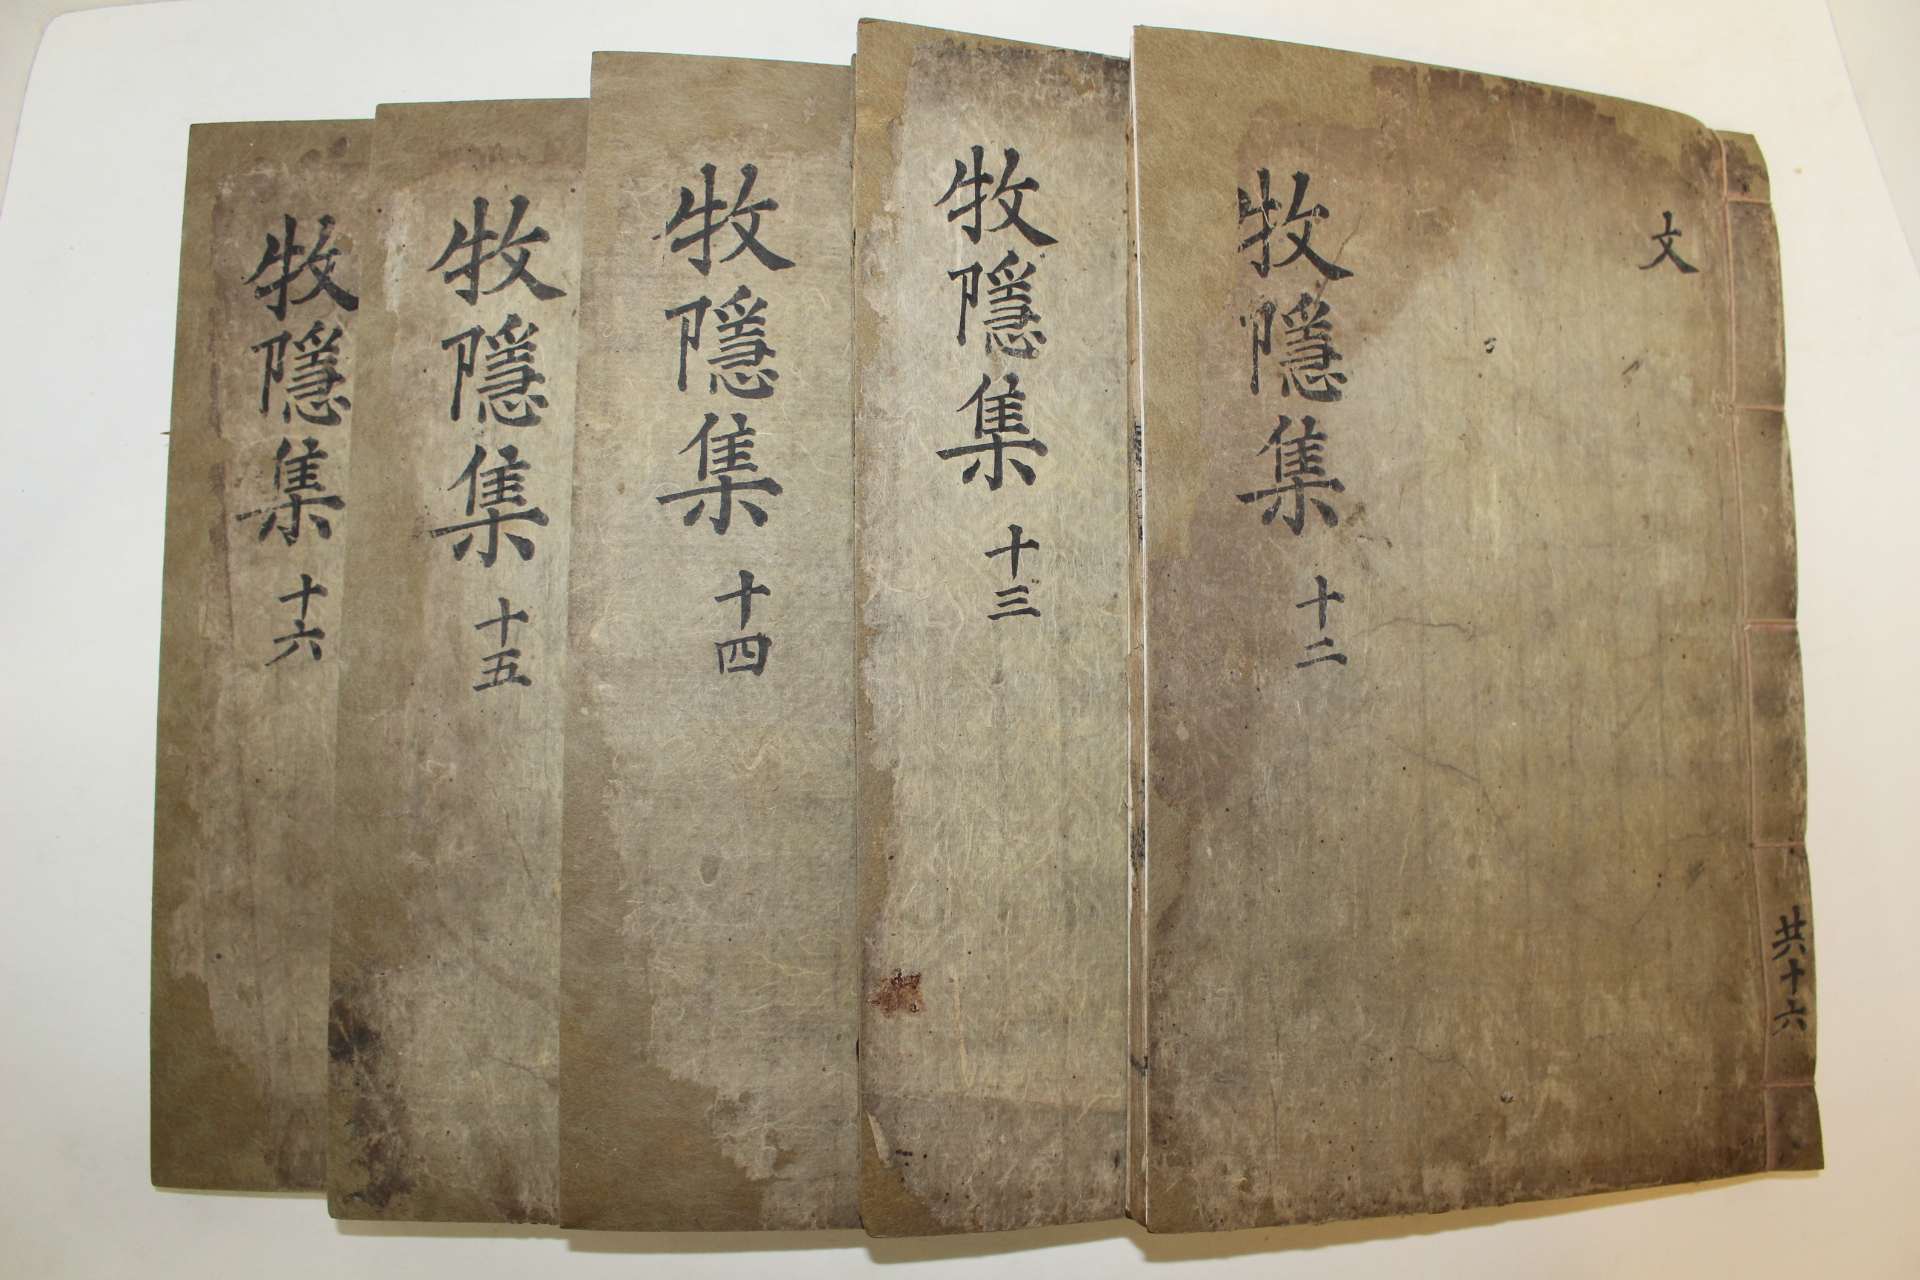 文
牧隱集 十二
共十六
牧隱集 十三
牧隱集 十四
牧隱集 十五
牧隱集 十六